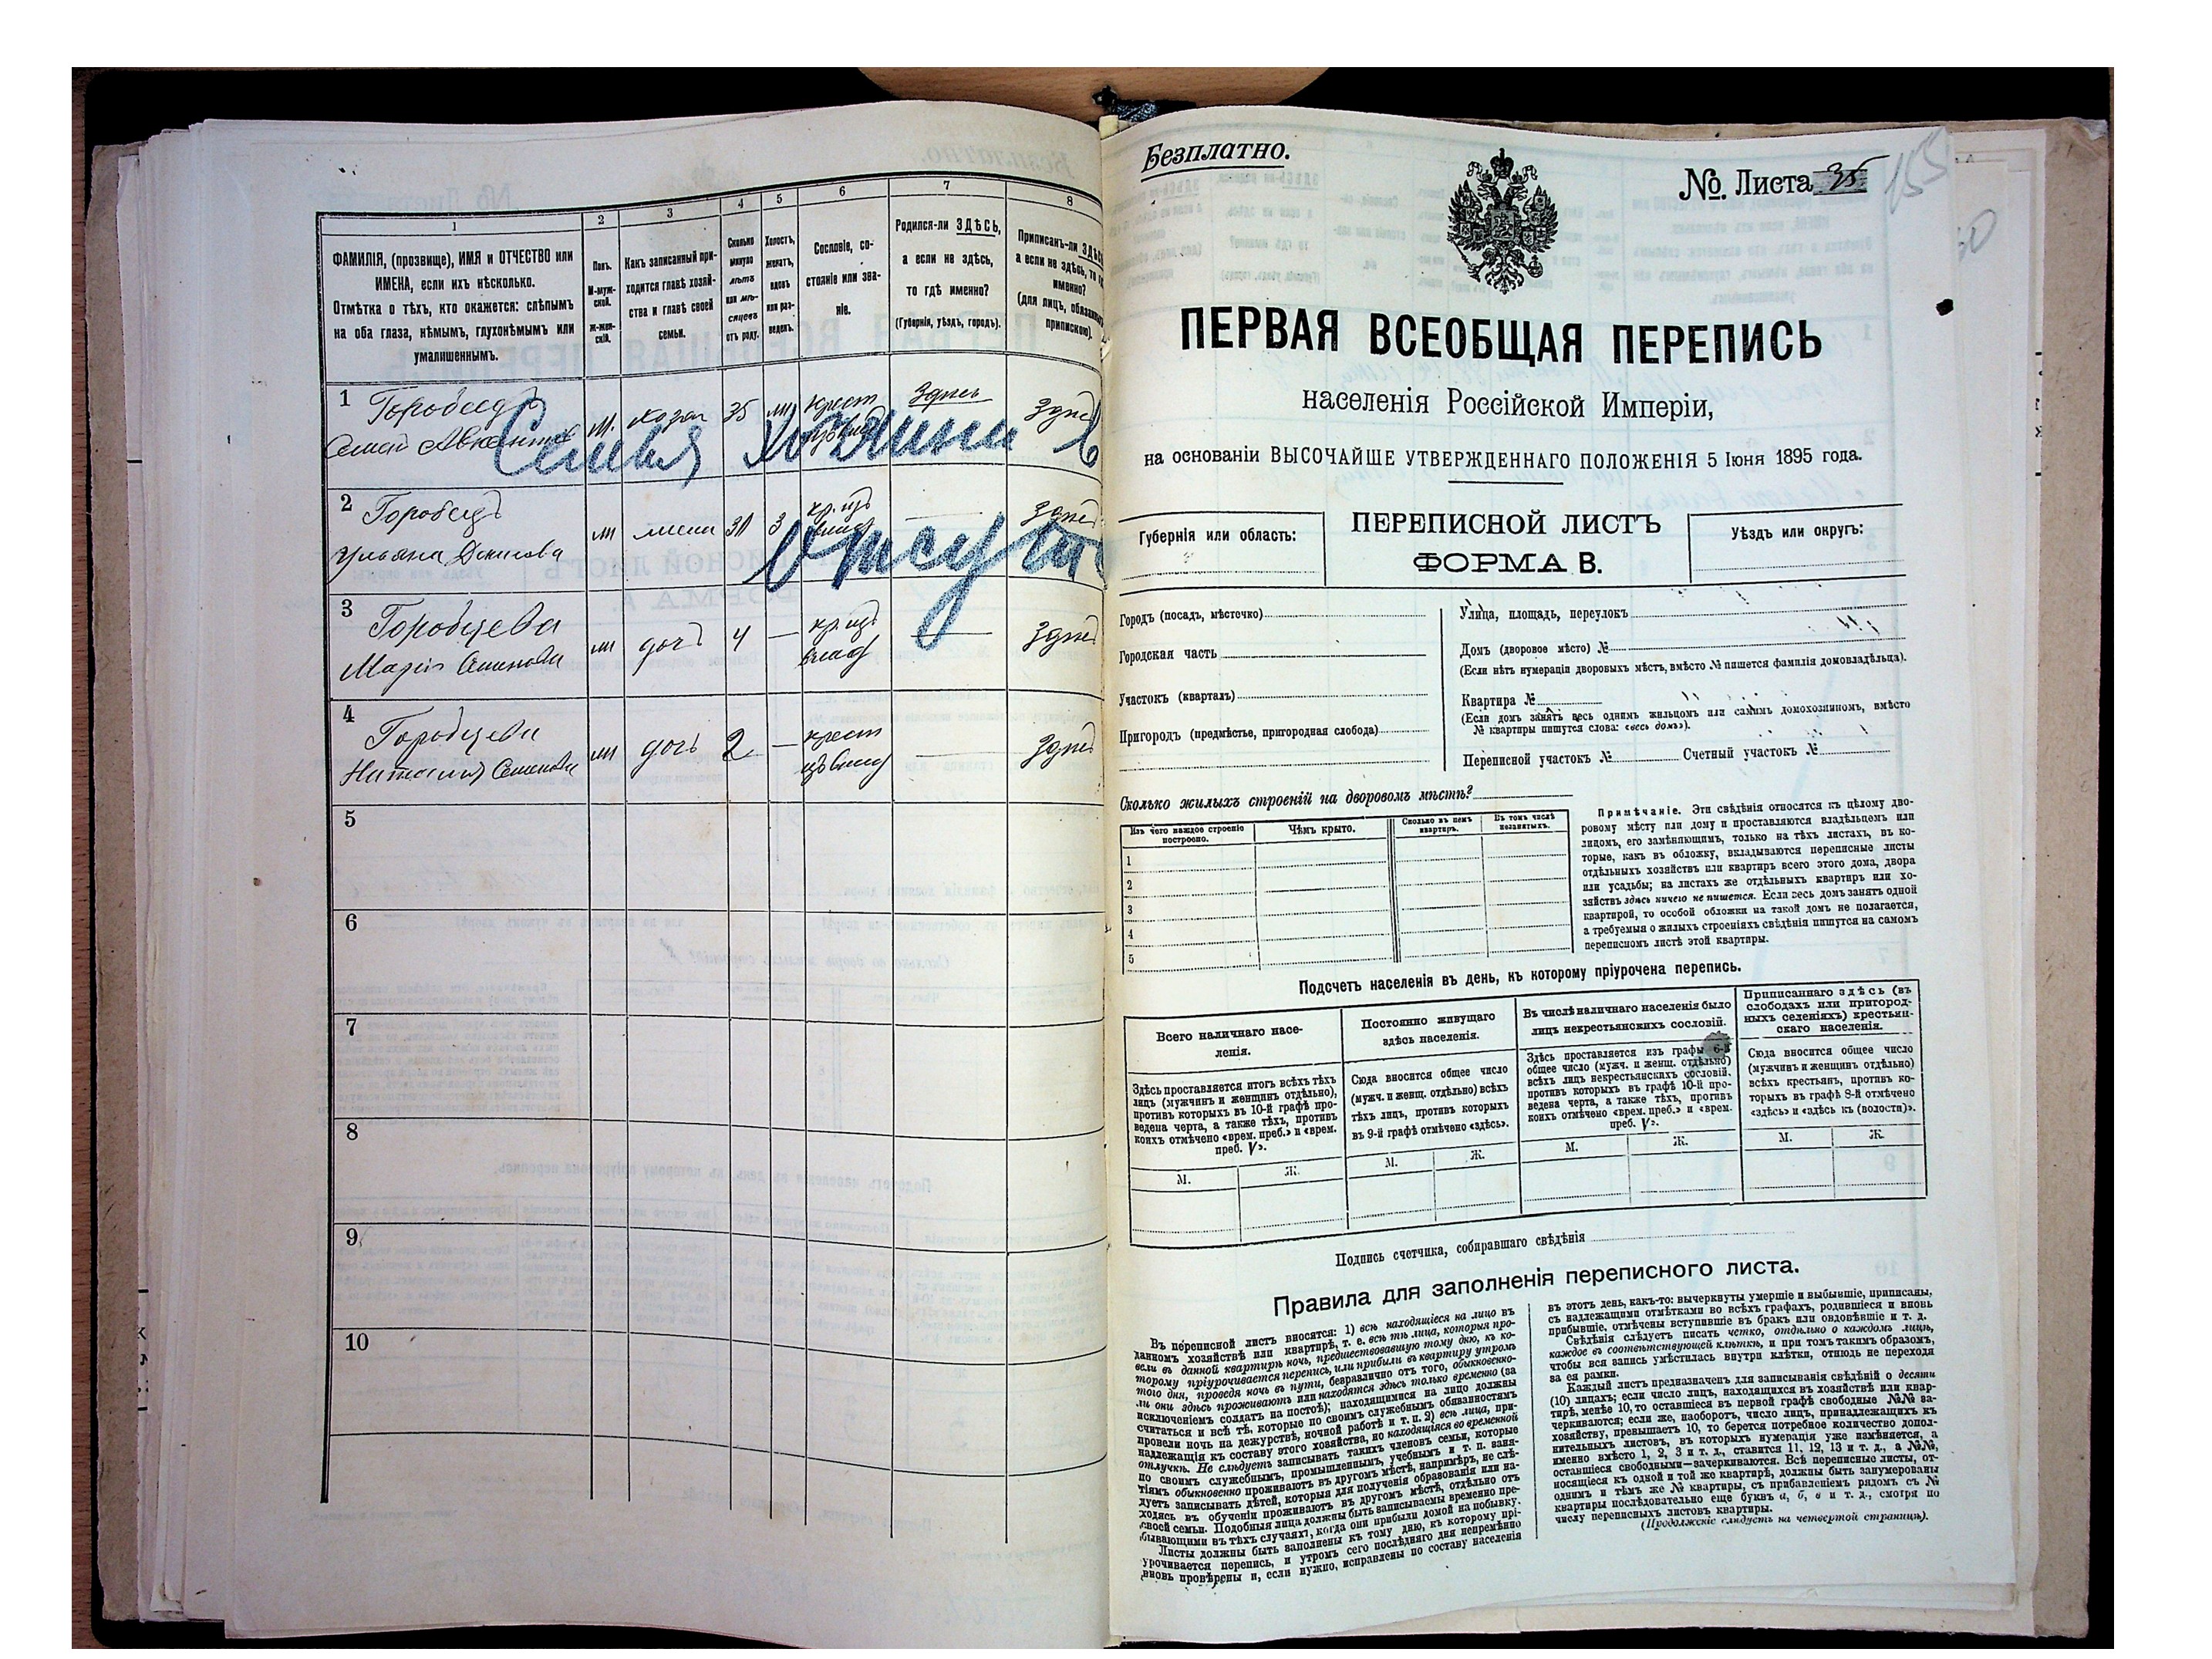 1
2
3
4
5
6
7
8
ФАМИЛІЯ, (прозвище), ИМЯ и ОТЧЕСТВО или
ИМЕНА, если ихъ нѣсколько.
Отмѣтка о тѣхъ, кто окажется: слѣпымъ
на оба глаза, нѣмымъ, глухонѣмымъ или
умалишеннымъ.
Полъ.
М-муж-
ской.
Ж-жен-
скій.
Какъ записанный при-
ходится главѣ хозяй-
ства и главѣ своей
семьи.
Сколько
минуло
лѣтъ
или мѣ-
сяцевъ
отъ роду.
Холостъ,
женатъ,
вдовъ
или раз-
веденъ.
Сословіе, со-
стояніе или зва-
ніе.
Родился-ли ЗДѢСЬ,
а если не здѣсь,
то гдѣ именно?
(Губернія, уѣздъ, городъ).
Приписанъ-ли
а если не здѣсь,
именно?
(для лицъ,
припискою).
1 Горобецъ
Семен
35
крест
Здѣсь
Семья хозяина в
2 Горобецъ
Ульяна Денисова
жена 30 з
3 Горобцева
Марія Семенова
дочь 4 —
4 Горобцева
Наталья Семенова
дочь 2 — крест
5
6
7
8
9
10
Безплатно.
№. Листа 35
155
ПЕРВАЯ ВСЕОБЩАЯ ПЕРЕПИСЬ
населенія Россійской Имперіи,
на основаніи ВЫСОЧАЙШЕ УТВЕРЖДЕННАГО ПОЛОЖЕНІЯ 5 Іюня 1895 года.
Губернія или область:
ПЕРЕПИСНОЙ ЛИСТЪ
ФОРМА В.
Уѣздъ или округъ:
Городъ (посадъ, мѣстечко)
Городская часть
Участокъ (кварталъ)
Пригородъ (предмѣстье, пригородная слобода)
Улица, площадь, переулокъ
Домъ (дворовое мѣсто) №
(Если нѣтъ нумераціи дворовыхъ мѣстъ, вмѣсто № пишется фамилія домовладѣльца).
Квартира №
(Если домъ занятъ весь однимъ жильцомъ или самимъ домохозяиномъ, вмѣсто
№ квартиры пишутся слова: «весь домъ»).
Переписной участокъ № Счетный участокъ №
Сколько жилыхъ строеній на дворовомъ мѣстѣ?
Изъ чего каждое строеніе
построено.
Чѣмъ крыто.
Сколько въ немъ
квартиръ.
Въ томъ числѣ
незанятыхъ.
1
2
3
4
5
Примѣчаніе. Эти свѣдѣнія относятся къ цѣлому дво-
ровому мѣсту или дому и проставляются владѣльцемъ или
лицомъ, его замѣняющимъ, только на тѣхъ листахъ, въ ко-
торые, какъ въ обложку, вкладываются переписные листы
отдѣльныхъ хозяйствъ или квартиръ всего этого дома, двора
или усадьбы; на листахъ же отдѣльныхъ квартиръ или хо-
зяйствъ здѣсь ничего не пишется. Если весь домъ занятъ одной
квартирой, то особой обложки на такой домъ не полагается,
а требуемыя о жилыхъ строеніяхъ свѣдѣнія пишутся на самомъ
переписномъ листѣ этой квартиры.
Подсчетъ населенія въ день, къ которому пріурочена перепись.
Всего наличнаго насе-
ленія.
Здѣсь проставляется итогъ всѣхъ тѣхъ
лицъ (мужчинъ и женщинъ отдѣльно),
противъ которыхъ въ 10-й графѣ про-
ведена черта, а также тѣхъ, противъ
коихъ отмѣчено «врем. преб.» и «врем.
преб. V».
М. Ж.
Постоянно живущаго
здѣсь населенія.
Сюда вносится общее число
(мужч. и женщ. отдѣльно) всѣхъ
тѣхъ лицъ, противъ которыхъ
въ 9-й графѣ отмѣчено «здѣсь».
М. Ж.
Въ числѣ наличнаго населенія было
лицъ некрестьянскихъ сословій.
Здѣсь проставляется изъ графы 6-й
общее число (мужч. и женщ. отдѣльно)
всѣхъ лицъ некрестьянскихъ сословій,
противъ которыхъ въ графѣ 10-й про-
ведена черта, а также тѣхъ, противъ
коихъ отмѣчено «врем. преб.» и «врем.
преб. V».
М. Ж.
Приписаннаго здѣсь (въ
слободахъ или пригород-
ныхъ селеніяхъ) крестьян-
скаго населенія.
Сюда вносится общее число
(мужчинъ и женщинъ отдѣльно)
всѣхъ крестьянъ, противъ ко-
торыхъ въ графѣ 8-й отмѣчено
«здѣсь» и «здѣсь къ (волости)».
М. Ж.
Подпись счетчика, собиравшаго свѣдѣнія
Правила для заполненія переписного листа.
Въ переписной листъ вносятся: 1) всѣ находящіеся на лицо въ
данномъ хозяйствѣ или квартирѣ, т. е. всѣ тѣ лица, которыя про-
вели въ данной квартирѣ ночь, предшествовавшую тому дню, къ ко-
торому пріурочивается перепись, или прибыли въ квартиру утромъ
того дня, проведя ночь въ пути, безразлично отъ того, обыкновенно-
ли они здѣсь проживаютъ или находятся здѣсь только временно (за
исключеніемъ солдатъ на постоѣ); находящимися на лицо должны
считаться и всѣ тѣ, которые по своимъ служебнымъ обязанностямъ
провели ночь на дежурствѣ, ночной работѣ и т. п. 2) всѣ лица, при-
надлежащія къ составу этого хозяйства, но находящіяся во временной
отлучкѣ. Не слѣдуетъ записывать такихъ членовъ семьи, которые
по своимъ служебнымъ, промышленнымъ, учебнымъ и т. п. заня-
тіямъ обыкновенно проживаютъ въ другомъ мѣстѣ, напримѣръ, не слѣ-
дуетъ записывать дѣтей, которыя для полученія образованія или на-
ходясь въ обученіи проживаютъ въ другомъ мѣстѣ, отдѣльно отъ
своей семьи. Подобныя лица должны быть записываемы временно пре-
бывающими въ тѣхъ случаяхъ, когда они прибыли домой на побывку.
Листы должны быть заполнены къ тому дню, къ которому прі-
урочивается перепись, и утромъ сего послѣдняго дня непремѣнно
вновь провѣрены и, если нужно, исправлены по составу населенія
въ этотъ день, какъ-то: вычеркнуты умершіе и выбывшіе, приписаны,
съ надлежащими отмѣтками во всѣхъ графахъ, родившіеся и вновь
прибывшіе, отмѣчены вступившіе въ бракъ или овдовѣвшіе и т. д.
Свѣдѣнія слѣдуетъ писать четко, отдѣльно о каждомъ лицѣ,
каждое въ соотвѣтствующей клѣткѣ, и при томъ такимъ образомъ,
чтобы вся запись умѣстилась внутри клѣтки, отнюдь не переходя
за ея рамки.
Каждый листъ предназначенъ для записыванія свѣдѣній о десяти
(10) лицахъ; если число лицъ, находящихся въ хозяйствѣ или квар-
тирѣ, менѣе 10, то оставшіеся въ первой графѣ свободные №№ за-
черкиваются; если же, наоборотъ, число лицъ, принадлежащихъ къ
хозяйству, превышаетъ 10, то берется потребное количество допол-
нительныхъ листовъ, въ которыхъ нумерація уже измѣняется, а
именно вмѣсто 1, 2, 3 и т. д., ставится 11, 12, 13 и т. д., а №№,
оставшіеся свободными—зачеркиваются. Всѣ переписные листы, от-
носящіеся къ одной и той же квартирѣ, должны быть занумерованы
однимъ и тѣмъ же № квартиры, съ прибавленіемъ рядомъ съ №
квартиры послѣдовательно еще буквъ а, б, в и т. д., смотря по
числу переписныхъ листовъ квартиры.
(Продолженіе слѣдуетъ на четвертой страницѣ).